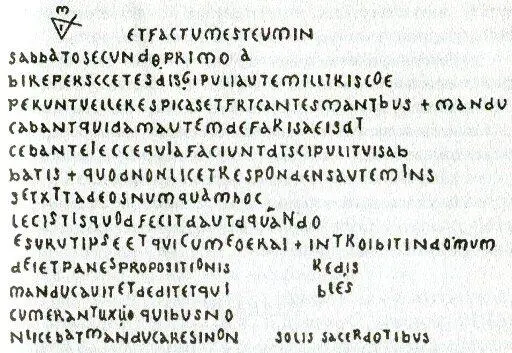 ETFACTUMESTEUMIN
SabbATOSECUNdOPRIMO a
bIREPERSCCETESdISGIPULIAUTEMILLIRISCOE
PERUNTUELLERESPICASETFRTCANTESMANIbUS + MANdU
CAbANTQUIdAMAUTEMdEFARISAEISdT
CEbANTEIECCEQUIAFACIUNTdTSCIPULITUISAb
bATIS + QUOdNONLICETRESPONdENSAUTEMINS
SETXTTAdEOSNUMQUAMhOC
LECISTISQUOdFECITdAUTdQUANdO
ESURUTIPSEETQUICUMEOERAI + INTROIbITINdOMUM
dEIETPANESPROPOSITIONIS REdIS
MANdUCAUITETdEdITETQUI bLES
CUMERANTUXUO QUIbUSNO
NLICEbATMANdUCARESINON SOLIS SACERdOTIbUS